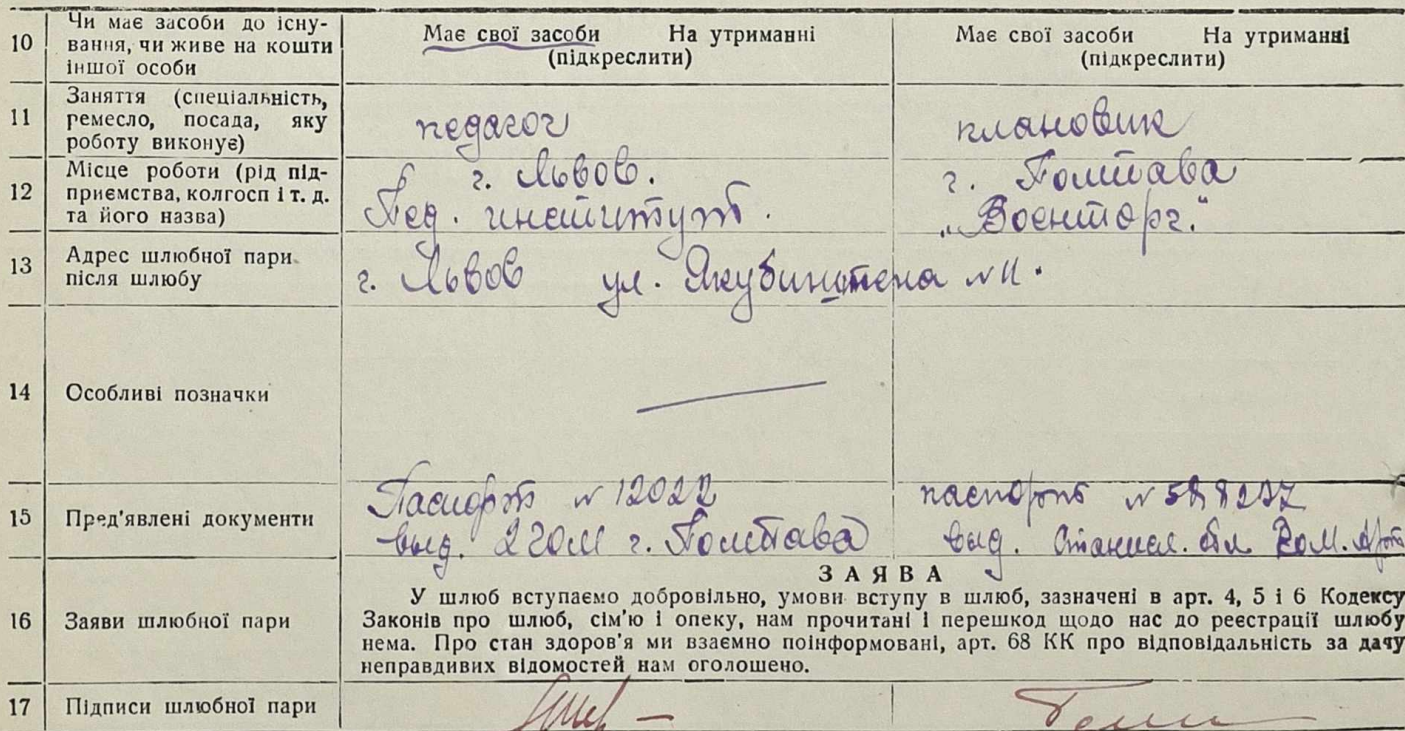 10 Чи має засоби до існу-
вання, чи живе на кошти
іншої особи
Має свої засоби На утриманні
(підкреслити)
Має свої засоби На утриманні
(підкреслити)
11 Заняття (спеціальність,
ремесло, посада, яку
роботу виконує)
педагог
плановик
12 Місце роботи (рід під-
приємства, колгосп і т. д.
та його назва)
г. Львов.
Пед. институт.
г. Полтава
„Военторг."
13 Адрес шлюбної пари
після шлюбу
г. Львов ул. №11.
14 Особливі позначки
15 Пред'явлені документи
Паспорт № 12022
выд. 2 ГОМ г. Полтава
паспорт №
выд. Станисл. обл.
16 Заяви шлюбної пари
ЗАЯВА
У шлюб вступаємо добровільно, умови вступу в шлюб, зазначені в арт. 4, 5 і 6 Кодексу
Законів про шлюб, сім'ю і опеку, нам прочитані і перешкод щодо нас до реєстрації шлюбу
нема. Про стан здоров'я ми взаємно поінформовані, арт. 68 КК про відповідальність за дачу
неправдивих відомостей нам оголошено.
17 Підписи шлюбної пари